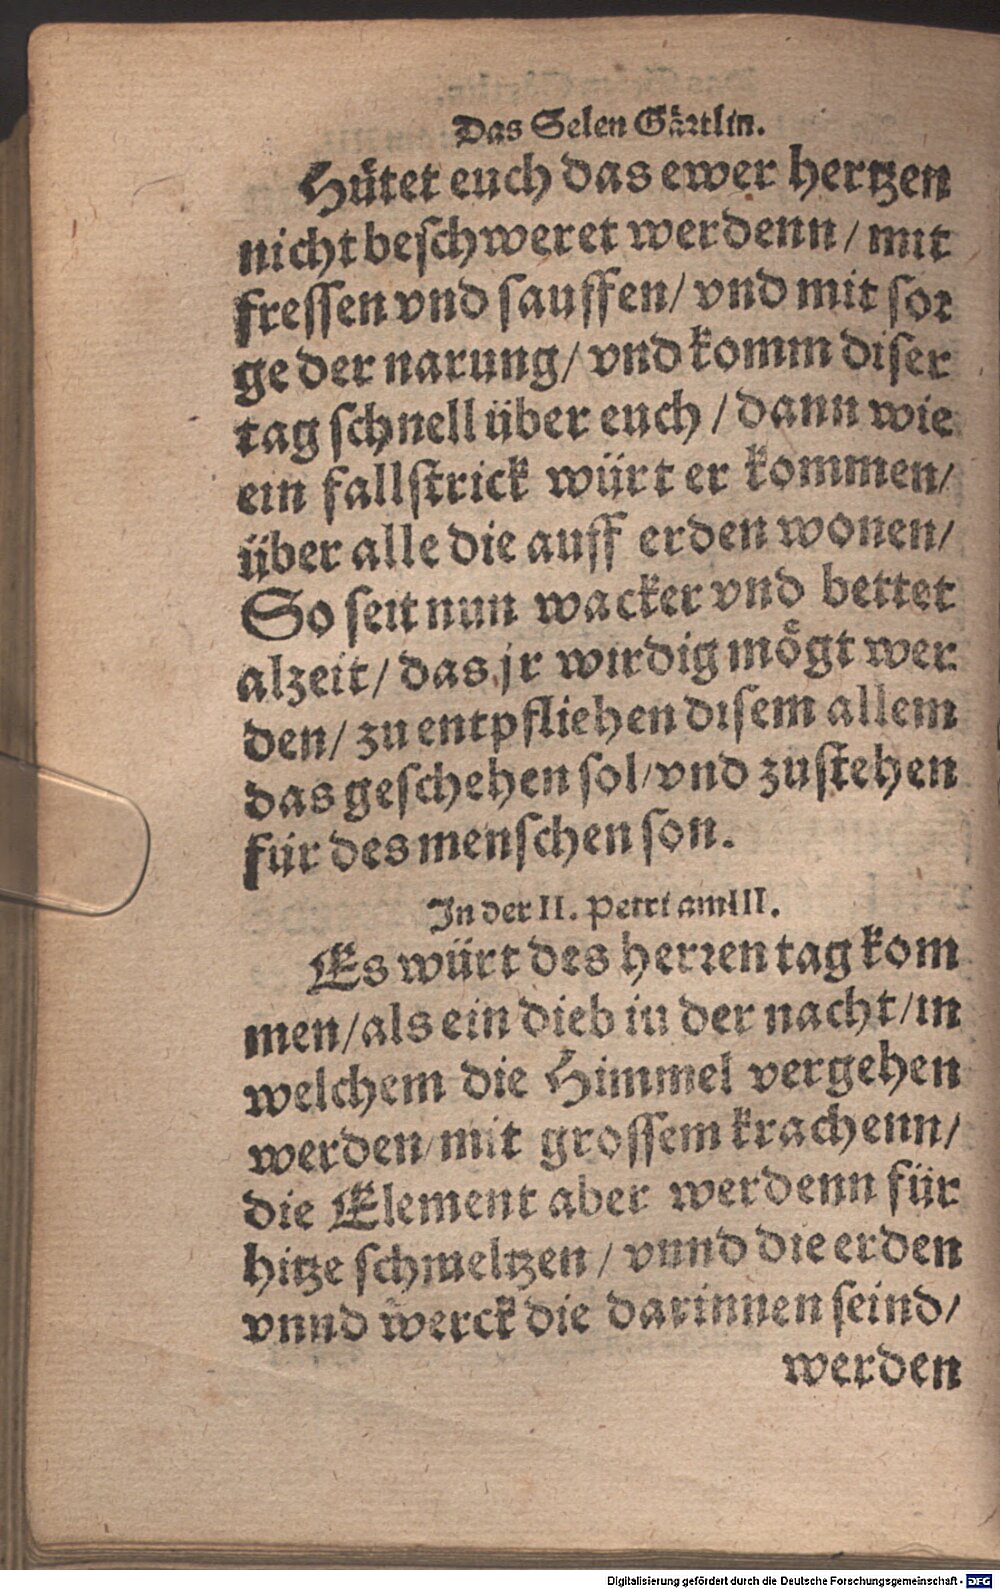 Das Selen Gaͤrtlin.
Huͤtet euch das ewer hertzen
nicht beschweret werdenn / mit
fressen vnd sauffen / vnd mit sor
ge der narung / vnd komm diser
tag schnell über euch / dann wie
ein fallstrick würt er kommen /
über alle die auff erden wonen /
So seit nun wacker vnd bettet
alzeit / das jr wirdig moͤgt wer
den / zu entpfliehen disem allem
das geschehen sol / vnd zu stehen
für des menschen son.
In der II. Petri am III.
Es würt des herren tag kom
men / als ein dieb in der nacht / in
welchem die Himmel vergehen
werden / mit grossem krachenn /
die Element aber werdenn für
hitze schmeltzen / vnnd die erden
vnnd werck die darinnen seind /
werden
Digitalisierung gefördert durch die Deutsche Forschungsgemeinschaft - DFG